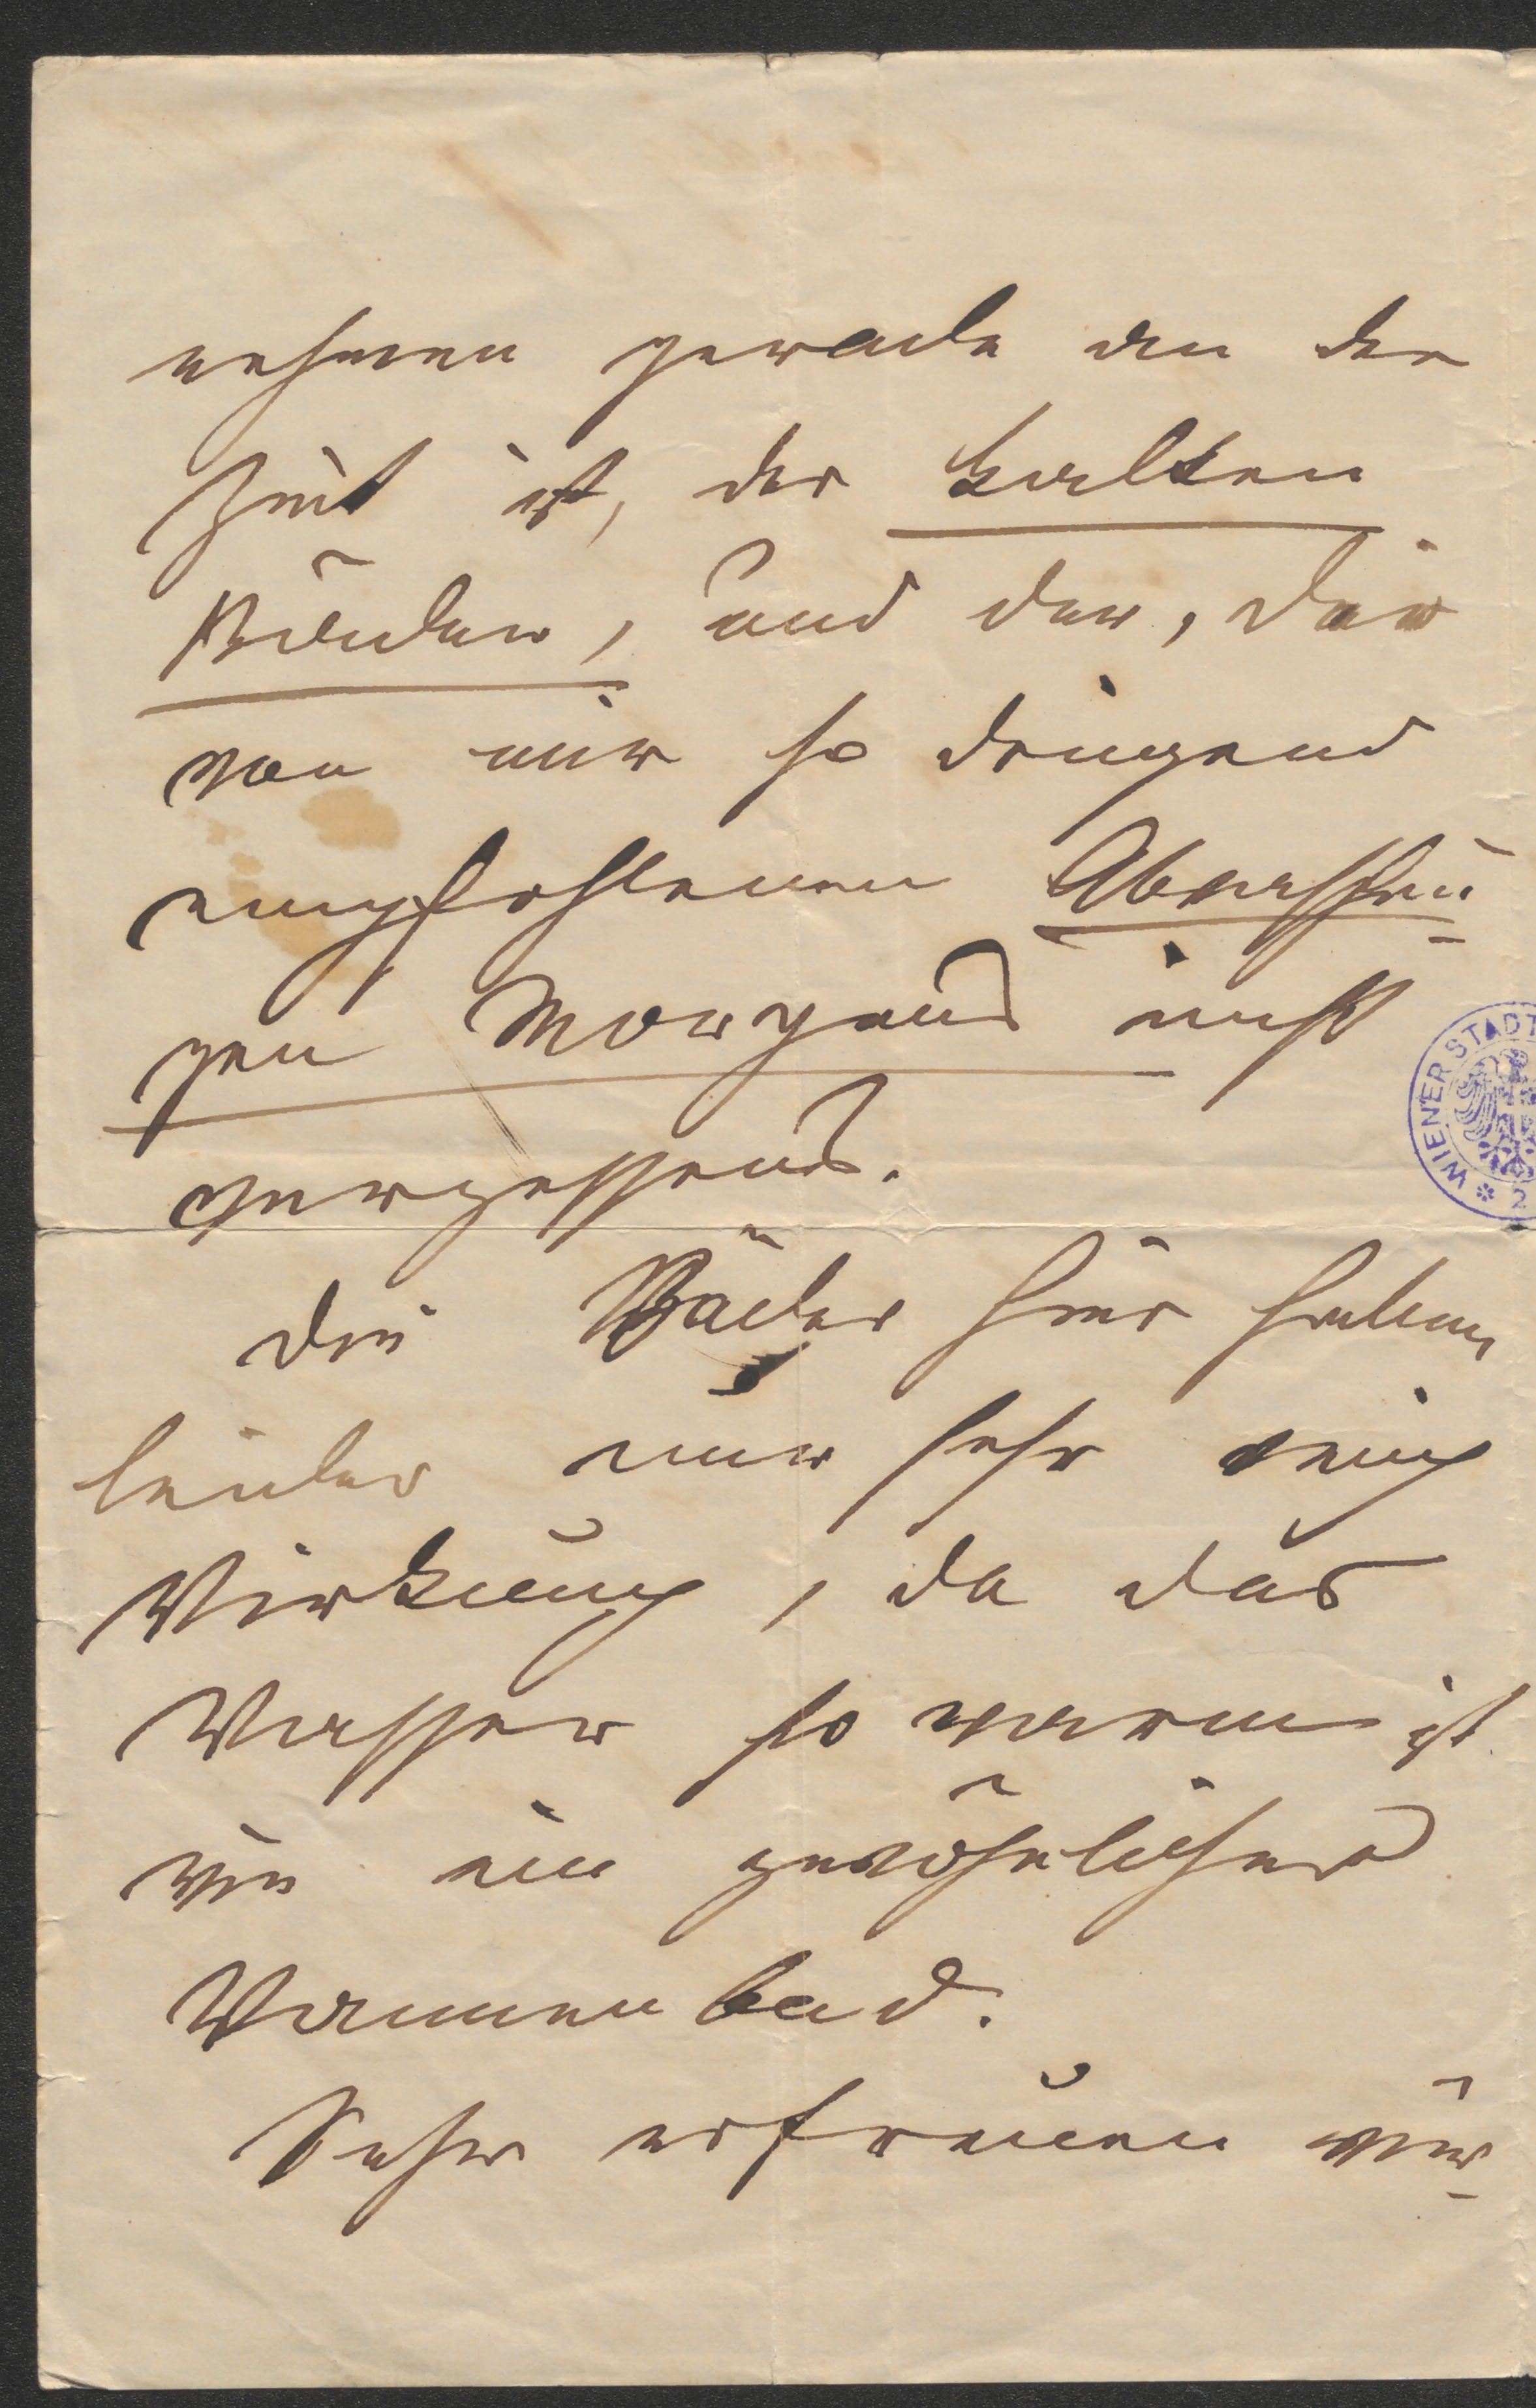 nehmen gerade an der
Zeit ist, der kalten
Bäder, und der, Dir
von mir so dringend
empfohlenen Abwaschun
gen Morgens nicht
vergessend.
Die Bäder hier haben
leider nur sehr wenig
Wirkung, da das
Wasser so warm ist
wie ein gewöhnliches
Wannenbad.
Sehr erfreuen wür-
WIENER STADT
2